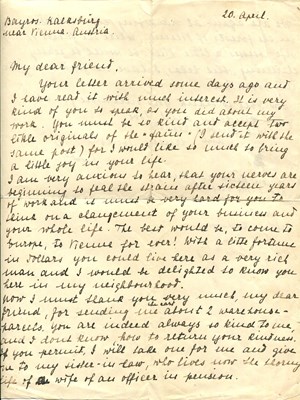 Bayros. Kalksburg
near Vienna. Austria.
20. April.
My dear friend.
Your letter arrived some days ago and
I have read it with much interest. It is very
kind of you to speak, as you did about my
work. You must be so kind and accept two
little originals of the (I sent it with the
same post) for I would like so much to bring
a little joy in your life.
I am very anxious to hear, that your nerves are
beginning to feel the strains after sixteen years
of work and it must be very hard for you to
think on a changement of your business and
your whole life. The best would be, to come to
Europe, to Vienna for ever! With a little fortune
in dollars you could live here as a very rich
man and I would be delighted to know you
here in my neighbourhood.
Now I must thank you very much, my dear
friend, for sending me about 2 warehouse-
parcels. You are indeed always so kind to me,
and I dont know how to return your kindness.
If you permit, I will take one for me and give
one to my sister-in-law, who lives now the thorny
life of a wife of an officer in pension.